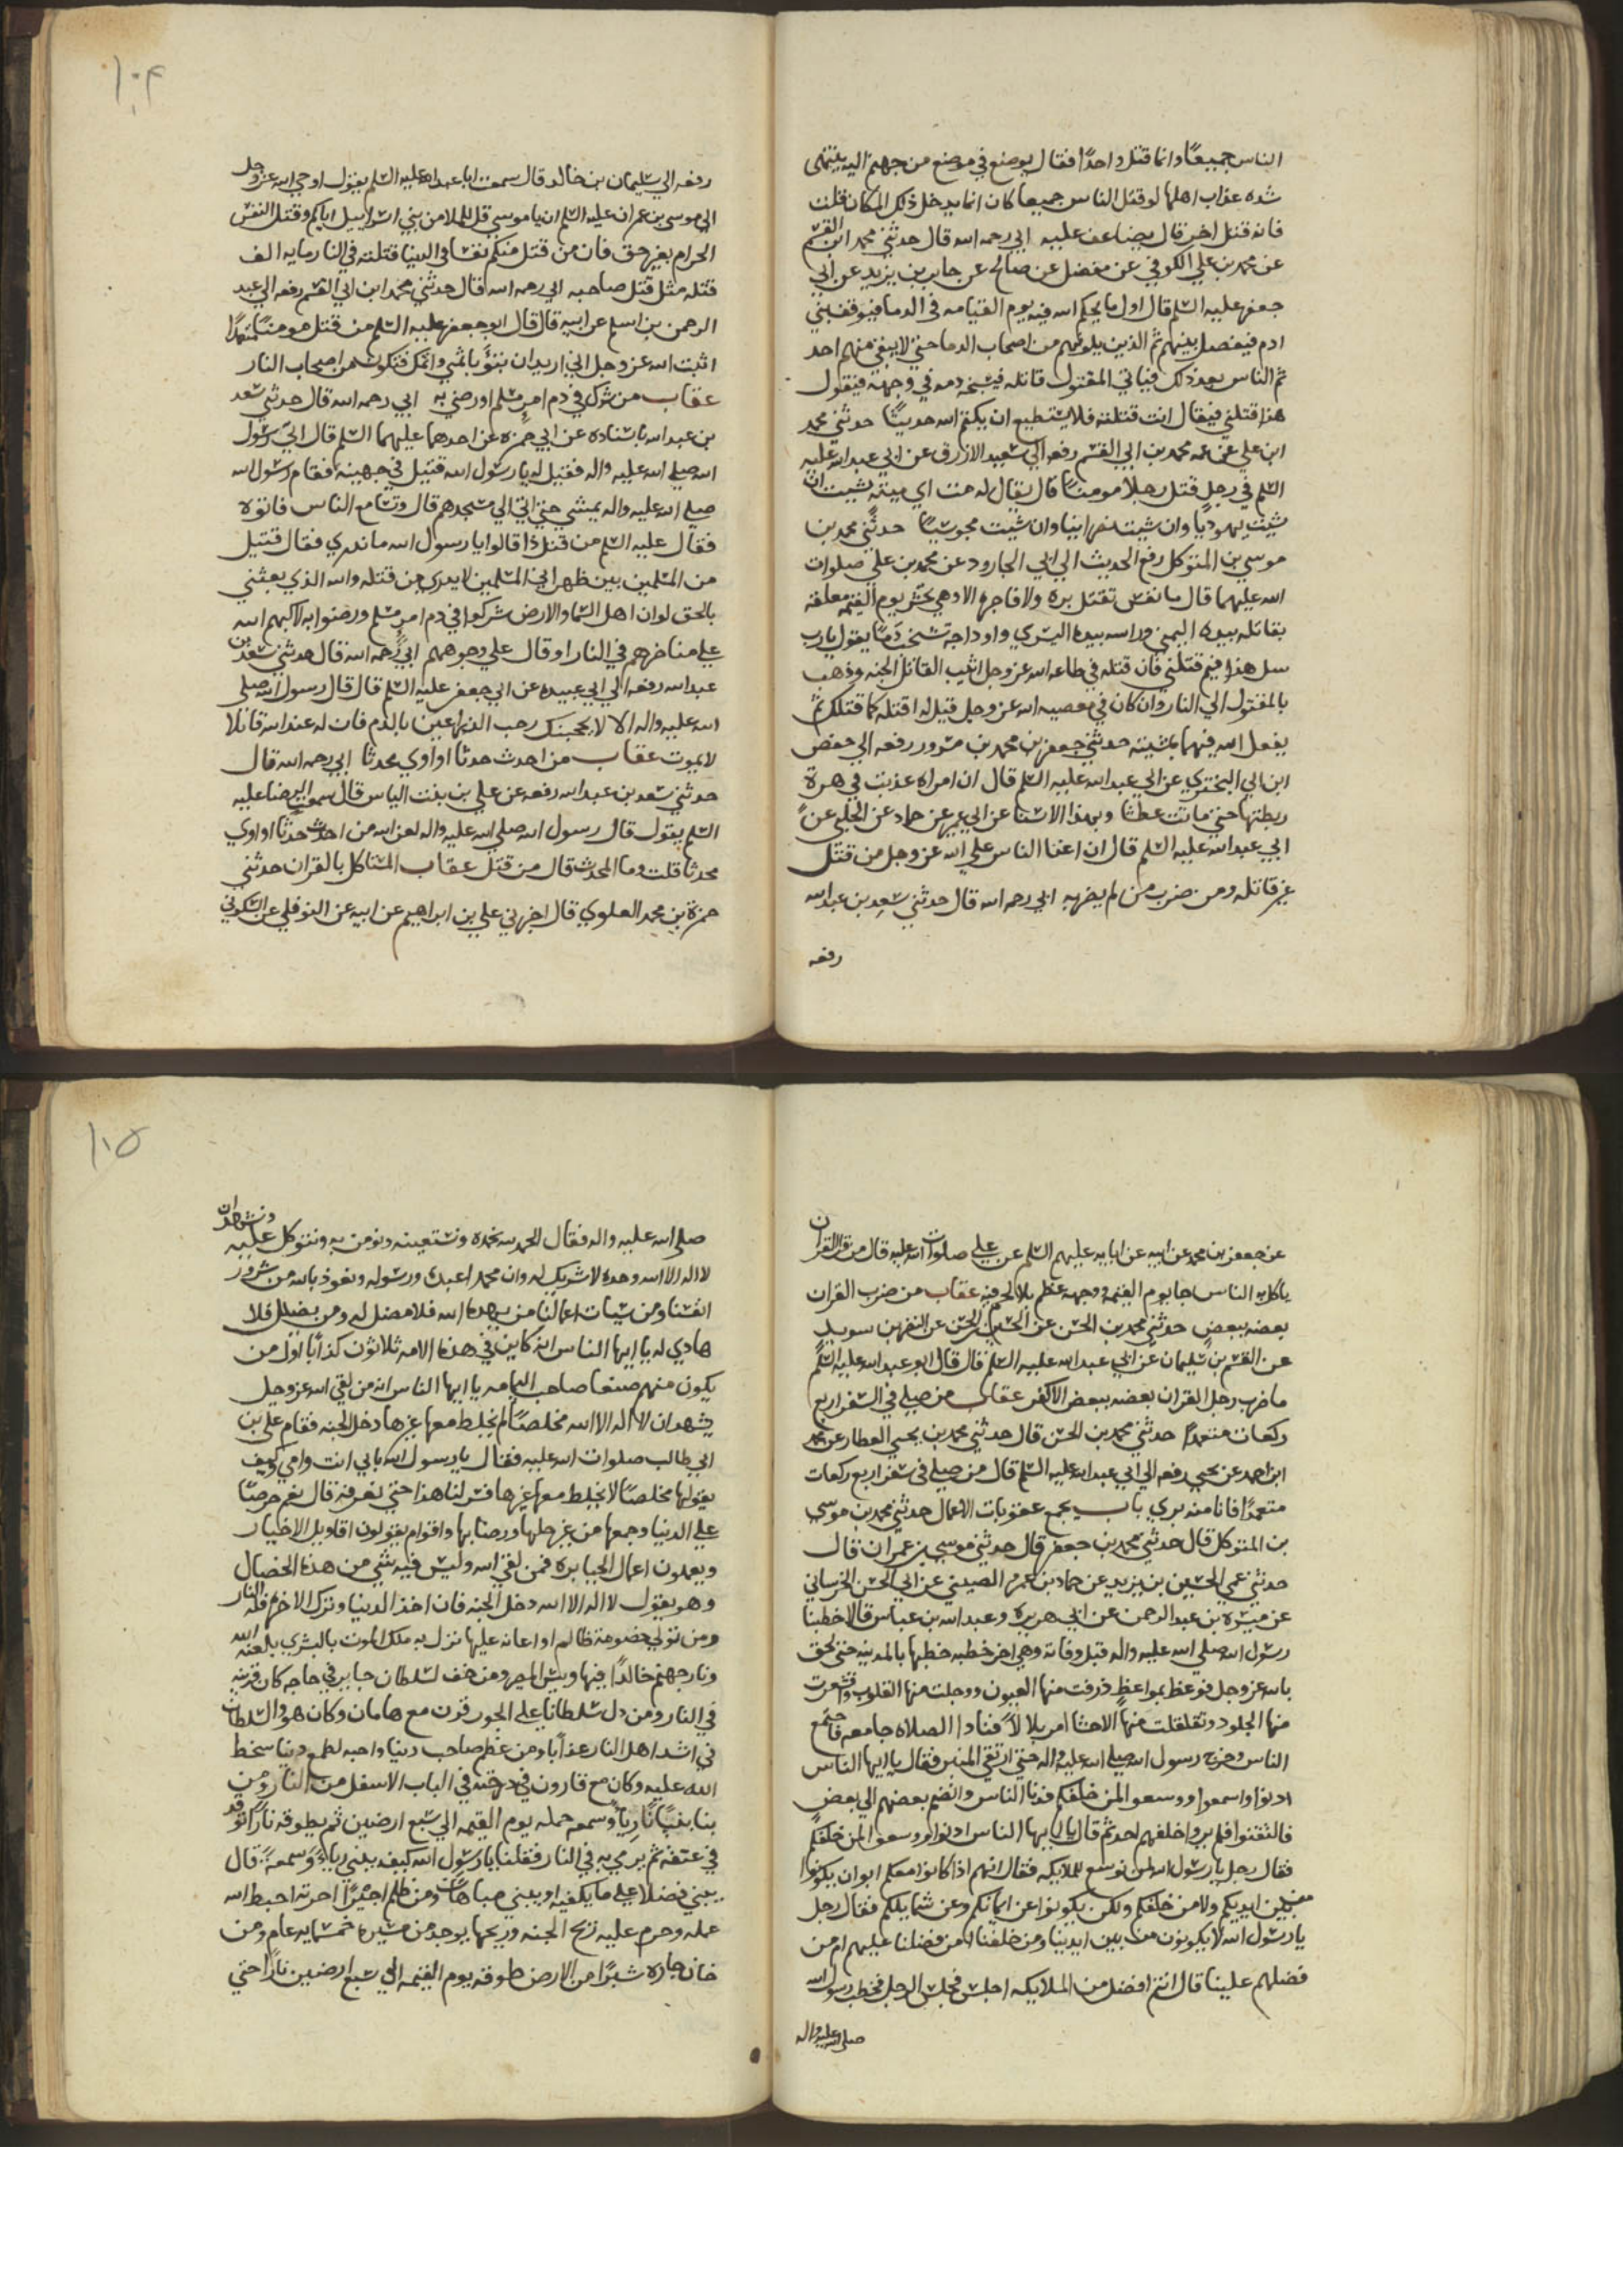 الناس جميعًا وانما قتل واحدًا فقال يوضع في موضع من جهنم اليه ينتهى
شده عذاب اهلها لو قتل الناس جميعا كان انما يدخل ذلك المكان قلت
فانه قتل اخر قال يضاعف عليه ابي رحمه الله قال حدثني محمد ابن القسم
عن محمد بن علي الكوفي عن مفضل عن صالح عن جابر بن يزيد عن ابي
جعفر عليه السلم قال اول ما يحكم الله فيه يوم القيامه في الدما فيوقف بني
ادم فيفصل بينهم ثم الذين يلونهم من اصحاب الدما حتي لا يبقي منهم احد
ثم الناس بعد ذلك فياتي المقتول قاتله فيشخب دمه في وجهه فيقول
هذا قتلني فيقال انت قتلته فلا يستطيع ان يكتم الله حديثًا حدثني محمد
ابن علي عن عمه محمد بن ابي القسم رفعه الي سعيد الازرق عن ابي عبد الله عليه
السلم في رجل قتل رجلا مومنًا قال يقال له مت اي ميته شيت ان
شيت يهوديا وان شيت نصرانيا وان شيت مجوسيًا حدثني محمد بن
موسي بن المتوكل رفع الحديث الي ابي الجارود عن محمد بن علي صلوات
الله عليهما قال ما نفس تقتل بره ولا فاجره الا وهي تحشر يوم القيمه معلقه
بقاتله بيده اليمني وراسه بيده اليسري واوداجه تشخب دمًا يقول يارب
سل هذا فيم قتلني فان قتله في طاعه الله عز وجل اثيب القاتل الجنه وذهب
بالمقتول الي النار وان كان في معصيه الله عز وجل قيل له اقتله كما قتلك ثم
يفعل الله فيهما بمشيته حدثني جعفر بن محمد بن مسرور رفعه الي حفص
ابن ابي البختري عن ابي عبد الله عليه السلم قال ان امراه عذبت في هرة
ربطتها حتي ماتت عطشا وبهذا الاسنا عن ابي عمير عن حماد عن الحلبي عن
ابي عبد الله عليه السلم قال ان اعتا الناس علي الله عز وجل من قتل
غير قاتله ومن ضرب من لم يضربه ابي رحمه الله قال حدثني سعد بن عبد الله
رفعه
١٠٤
رفعه الي سليمان بن خالد قال سمعت ابا عبد الله عليه السلم يقول اوحي الله عز وجل
الي موسي بن عمران عليه السلم ان يا موسي قل للملا من بني اسراييل اياكم وقتل النفس
الحرام بغير حق فان من قتل منكم نفسًا في الدنيا قتلته في النار مايه الف
قتله مثل قتل صاحبه ابي رحمه الله قال حدثني محمد ابن ابي القسم رفعه الي عبد
الرحمن بن اسلم عن ابيه قال قال ابو جعفر عليه السلم من قتل مومنًا متعمدًا
اثبت الله عز وجل اني اريد ان تبوء باثمي واثمك فتكون من اصحاب النار
عقاب من شرك في دم امر مسلم او رضي به ابي رحمه الله قال حدثني سعد
بن عبد الله باسناده عن ابي حمزه عن احدهما عليهما السلم قال اتي رسول
الله صلي الله عليه واله فقيل له يا رسول الله قتيل في جهينه فقام رسول الله
صلي الله عليه واله يمشي حتي اتي الي مسجدهم قال وتسامع الناس فاتوه
فقال عليه السلم من قتل ذا قالوا يا رسول الله ما ندري فقال قتيل
من المسلمين بين ظهراني المسلمين لا يدري من قتله والله الذي بعثني
بالحق لو ان اهل السما والارض شركوا في دم امر مسلم ورضوا به لاكبهم الله
علي مناخرهم في النار او قال علي وجوههم ابي رحمه الله قال حدثني سعد بن
عبد الله رفعه الي ابي عبيده عن ابي جعفر عليه السلم قال قال رسول الله صلي
الله عليه واله الا لا يعجبنك رحب الذراعين بالدم فان له عند الله قاتلا
لا يموت عقاب من احدث حدثًا او اوي محدثا ابي رحمه الله قال
حدثني سعد بن عبد الله رفعه عن علي بن بنت الياس قال سمعت الرضا عليه
السلم يقول قال رسول الله صلي الله عليه واله لعن الله من احدث حدثًا او اوي
محدثا قلت وما المحدث قال من قتل عقاب المتاكل بالقران حدثني
حمزة بن محمد العلوي قال اخبرني علي بن ابراهيم عن ابيه عن النوفلي عن السكوني
عن جعفر بن محمد عن ابيه عن ابايه عليهم السلم عن علي صلوات الله عليه قال من قرا القران
ياكل به الناس جا يوم القيمه ووجهه عظم بلا لحم فيه عقاب من ضرب القران
بعضه ببعض حدثني محمد بن الحسن عن الحسين بن الحسن عن النضر بن سويد
عن القسم بن سليمان عن ابي عبد الله عليه السلم قال قال ابو عبد الله عليه السلم
ما ضرب رجل القران بعضه ببعض الا كفر عقاب من صلي في السفر اربع
ركعات متعمدًا حدثني محمد بن الحسن قال حدثني محمد بن يحيي العطار عن محمد
ابن احمد عن يحيي رفعه الي ابي عبد الله عليه السلم قال من صلي في سفر اربع ركعات
متعمدًا فانا منه بري باب يجمع عقوبات الاعمال حدثني محمد بن موسي
بن المتوكل قال حدثني محمد بن جعفر قال حدثني موسي بن عمران قال
حدثني عمي الحسين بن يزيد عن حماد بن عمرو الصيني عن ابي الحسن الخرساني
عن ميسره بن عبد الرحمن عن ابي هريره وعبد الله بن عباس قالا خطبنا
رسول الله صلي الله عليه واله قبل وفاته وهي اخر خطبه خطبها بالمدينه حتي لحق
بالله عز وجل فوعظ بمواعظ ذرفت منها العيون ووجلت منها القلوب واقشعرت
منها الجلود وتقلقلت منها الاحشا امر بلالاً فنادا الصلاه جامعه فاجتمع
الناس وخرج رسول الله صلي الله عليه واله حتي ارتقي المنبر فقال يا ايها الناس
ادنوا واسمعوا ووسعوا لمن خلفكم فدنا الناس وانضم بعضهم الي بعض
فالتفتوا فلم يروا خلفهم احد ثم قال يا ايها الناس ادنوا ووسعوا لمن خلفكم
فقال رجل يا رسول الله لمن نوسع للملايكه فقال انهم اذا كانوا معكم ابوا ان يكونوا
من بين ايديكم ولا من خلفكم ولكن يكونوا عن ايمانكم وعن شمايلكم فقال رجل
يا رسول الله لا يكونون من بين ايدينا ومن خلفنا امن فضلنا عليهم ام من
فضلهم علينا قال انتم افضل من الملايكه اجلس فجلس الرجل فخطب رسول الله
صلي الله عليه واله
١٠٥
صلي الله عليه واله فقال الحمد لله نحمده ونستعينه ونومن به ونتوكل عليه ونشهد ان
لا اله الا الله وحده لا شريك له وان محمدا عبده ورسوله ونعوذ بالله من شرور
انفسنا ومن سيات اعمالنا من يهده الله فلا مضل له ومن يضلل فلا
هادي له يا ايها الناس انه كاين في هذه الامه ثلاثون كذابا اول من
يكون منهم صنعا صاحب اليمامه يا ايها الناس انه من لقي الله عز وجل
يشهد ان لا اله الا الله مخلصًا لم يخلط معها غيرها دخل الجنه فقام علي بن
ابي طالب صلوات الله عليه فقال يا رسول الله بابي انت وامي وكيف
يقولها مخلصًا لا يخلط معها غيرها فسر لنا هذا حتي نعرفه قال نعم حرصًا
علي الدنيا وجمعها من غير حلها ورضا بها واقوام يقولون اقاويل الاخيار
ويعملون اعمال الجبابره فمن لقي الله وليس فيه شي من هذه الخصال
وهو يقول لا اله الا الله دخل الجنه فان اخذ الدنيا وترك الاخره فله النار
ومن تولي خصومة ظالم او اعانه عليها نزل به ملك الموت بالبشري بلعنه الله
ونار جهنم خالدًا فيها وبيس المصير ومن خف لسلطان جاير في حاجه كان قرينه
في النار ومن دل سلطانا علي الجور قرن مع هامان وكان هو والسلطان
في اشد اهل النار عذابا ومن عظم صاحب دنيا واحبه لطمع دنيا سخط
الله عليه وكان مع قارون في درجته في الباب الاسفل من النار ومن
بنا بنيانًا رياً وسمعه حمله يوم القيمه الي سبع ارضين ثم يطوقه نارًا توقد
في عنقه ثم يرمي به في النار فقلنا يا رسول الله كيف يبني رياً وسمعة قال
يبني فضلا علي ما يكفيه او يبني مباهاتًا ومن ظلم اجيرًا اجرته احبط الله
عمله وحرم عليه ريح الجنه وريحها يوجد من مسيره خمسمايه عام ومن
خان جاره شبرًا من الارض طوقه يوم القيمه الي سبع ارضين نارًا حتي